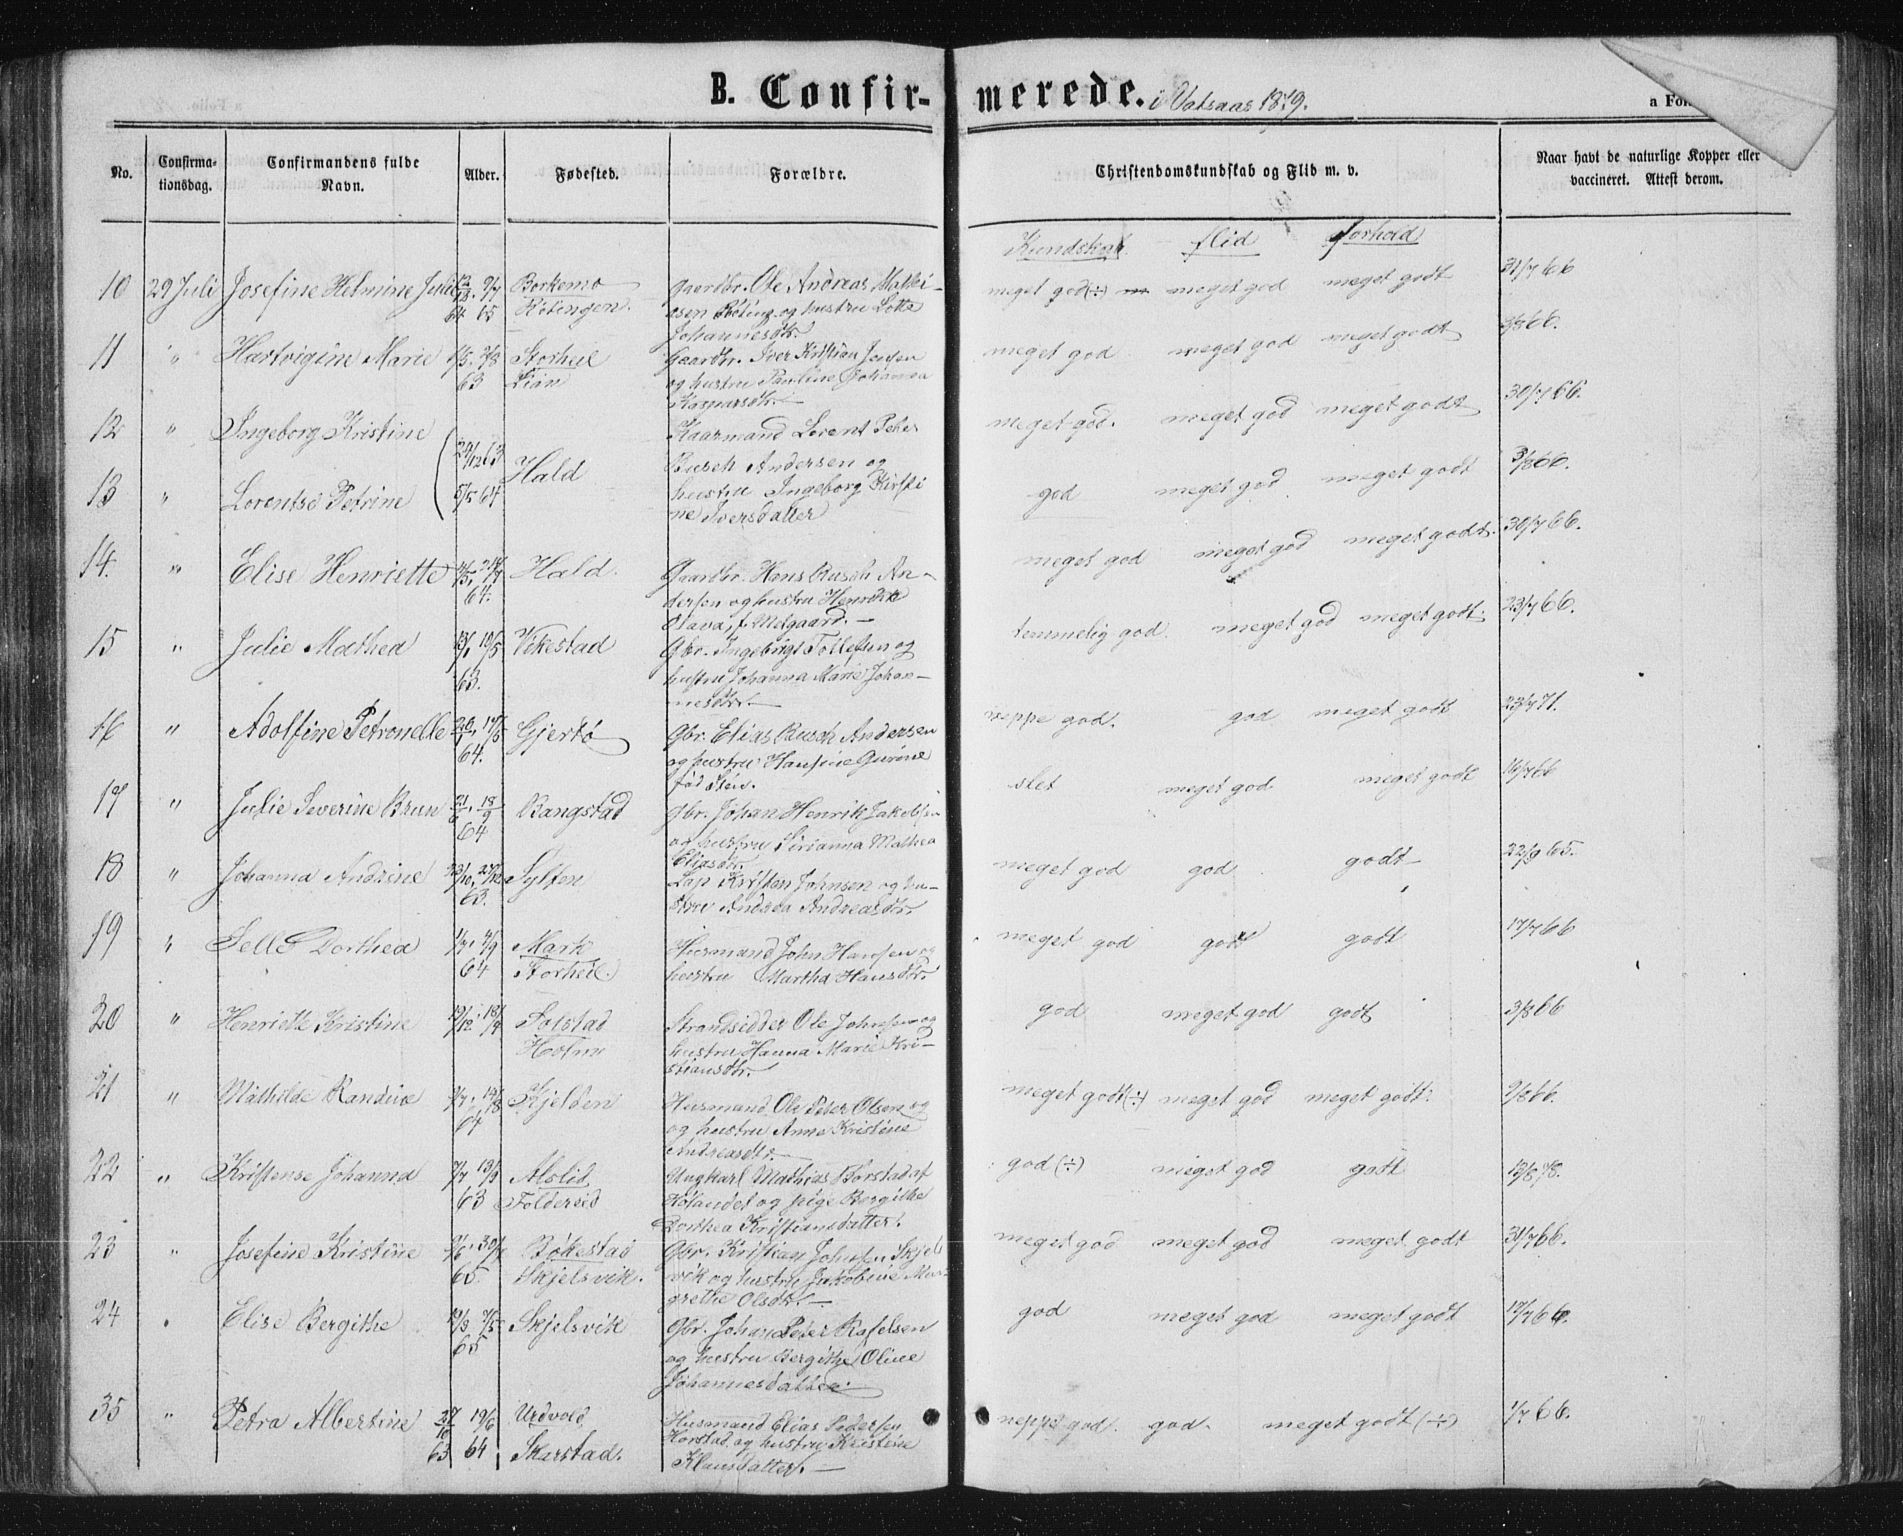 B. Confir-
merede. i Vatsaas 1879.
No.
Confirma-
tionsdag.
Confirmandens fulde
Navn.
Alder.
Fødested.
Forældre.
Christendomskundskab og Flid m. v.
Naar havt de naturlige Kopper eller
vaccineret. Attest derom.
Kundskab - flid forhold
10 29 Juli Josefine Helmine Julie Borkemo Gaardbr. Ole Andreas Mathi-
64 65 Kolingen. osen og hustru Lotte
Johannesdtr.
meget god (÷) meget god meget godt 31/7 66
11 " Hartvigine Marie Storheil Gaardbr. Iver Kristian Jensen
63 Lian og hustru Pauline Johanna
Kaspersdtr. -
meget god meget god meget godt 3/8 66.
12 " Ingeborg Kristine 29/12 63 Kaarmand Lorents Peter
meget god. meget god meget godt 30/7 66.
Hald Busch Andersen og
13 " Lorentse Petrine 5/5 64 hustru Ingeborg Kirsti
ne Iversdatter
god meget god meget godt 3/8 66.
14. " Elise Henriette Hald. Gaardbr. Hans Busch An-
64. dersen og hustru Henrikke
Olava, f. Melgaard. -
meget god meget god meget godt. 30/7 66.
15 " Julie Mathea Vikestad Gbr. Ingebrigt Tollefsen og
63. hustru Johanna Marie Johan-
nesdtr. -
temmelig god. meget god meget godt. 23/7 66.
16 " Adolfine Petronelle Gjertø Gbr. Elias Busch Andersen
64. og hustru Hansine Gurine
født Sten.
neppe god. god meget godt 23/7 71.
17 " Julie Severine Brun 21/6, 18/9 Bangstad Gbr. Johan Henrik Jakobsen
64 og hustru Sirianna Mathea
Eliasdtr.
slet meget god meget godt 16/7 66
18 " Johanna Andrine 23/10, 27/12 Sylten Lap Kristan Johnsen og hu-
63. stru Andrea Andreasdtr.
meget god god godt 22/9 65.
19 " Selle Dorthea Mark Husmand John Hansen og
64 Storheil. hustru Martha Hansdtr.
meget god godt godt 17/7 66
20 " Henriette Kristine Solstad Strandsidder Ole Johnsen og
Holme hustru Hanna Marie Kri-
stiansdtr.
god meget god godt 3/8 66
21 " Mathilde Randine Kjelden Husmand Ole Peter Olsen og
64 og hustru Anne Kristine
Andreasdtr. -
meget godt (÷) meget god meget godt. 9/8 66.
22 " Kristense Johanna Alslid Ungkarl Mathias Borstad af
63 Foldereid Hølandet og pige Bergithe
Dorthea Kristiansdatter.
god (÷) meget god godt 13/8 78.
23 " Josefine Kristine Bökestad Gbr. Kristian Johnsen Skjels
65. Skjelsvik. vik og hustru Jakobine Mar-
grethe Olsdtr. -
meget god meget god meget godt 31/7 66.
24 " Elise Bergithe Skjelsvik Gbr. Johan Peter Rafelsen
65 og hustru Bergithe Oline
Johannesdatter.
god meget god meget godt 17/7 66.
35 " Petra Albertine 27/10 19/6 Urdvold Husmand Elias Pedersen
63 64. Skarstad. Horstad og hustru Kristine
Klausdatter. -
neppe god. god. meget godt (÷) 1/7 66.